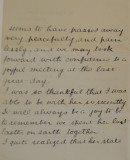 seems to have passed away
very peacefully and pain
lessly, and we may look
forward with confidence to a
joyful meeting at the last
near day.
I was so thankful that I was
able to be with her so recently
It will always be a joy to
to remember we spent her last
Easter on earth together.
I quite realized that her state